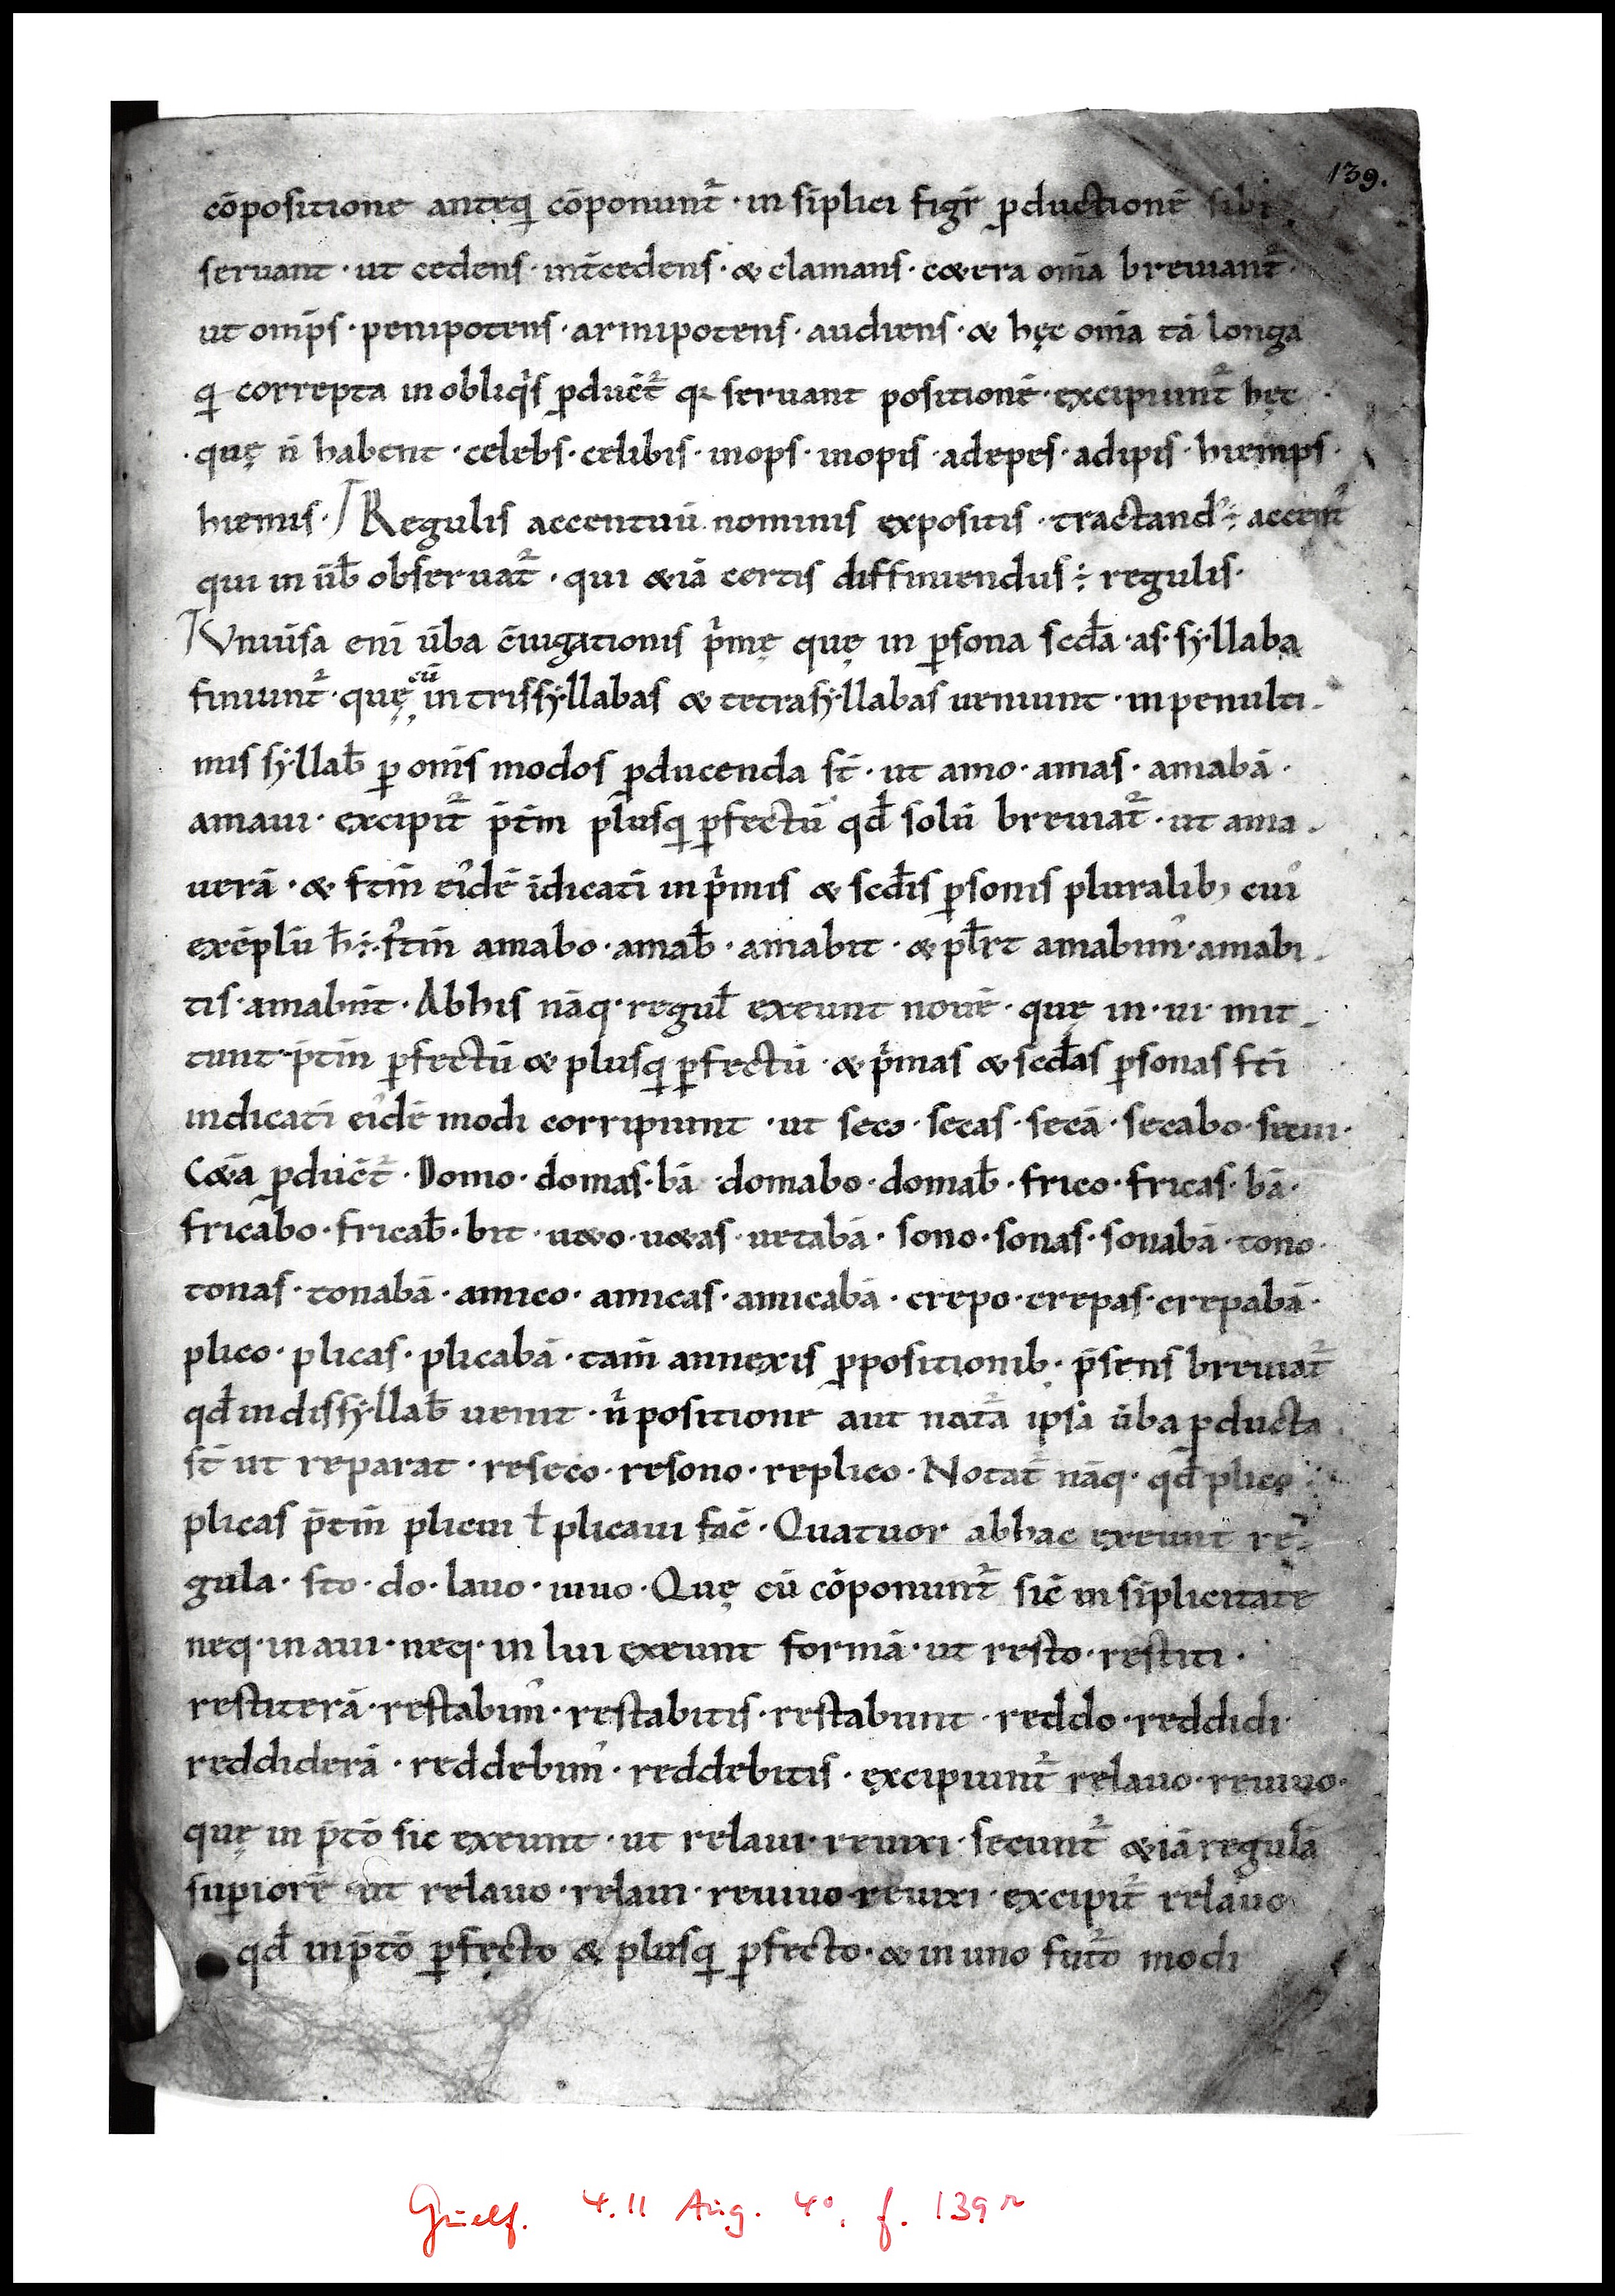 139.
cōpositione antęq̄ cōponunt᷑ · in sīplici figr̄ ꝓductionē sibi
seruant · ut cedens · int̄cedens · & clamans · c&era om̄a breuiant᷑ ·
ut om̄ps · penipotens · armipotens · audiens · & hęc om̄a tā longa
q̄ correpta in obliq͛s ꝓduct̄᷑ seruant positionē · excipiunt᷑ hęc
· quę n̄ habent · celebs · celibis · inops · inopis · adepes · adipis · hiemps ·
hiemis · Regulis accentuū nominis expositis · tractandꝰ ÷ accent᷒
qui in ūb̄ obseruat᷑ · qui &iā certis diffiniendus ÷ regulis ·
Vniūsa enī ūba c̄iugationis p͛mę quę in ꝑsona scd̄a · as · syllaba
finiunt᷑ · quę cū in trissyllabas & tetrasyllabas ueniunt · in penulti-
mis syllab̄ ꝑ om̄s modos ꝓducenda st̄ · ut amo · amas · amabā ·
amaui · excipit᷑ p̄t̄m plusq̄ ꝑfectū qd̄ solū breuiat᷑ · ut ama-
uerā · & ft̄m eiꝰdē īdicatī in p͛mis & scd̄is ꝑsonis pluralib; cuiꝰ
exēplū h̄ ÷ · ft̄m amabo · amab̄ · amabit · & pl̄r̄t amabimꝰ · amabi-
tis · amabn̄t · Abhis nāq · regul̄ exeunt nouē · quę in · ui · mit-
tunt · p̄t̄m ꝑfectū & plusq̄ ꝑfectū · & p͛mas & scd̄as ꝑsonas ftī
indicatī eiꝰdē modi corripiunt · ut seco · secas · secā · secabo · secui ·
C&̄a ꝓduc̄t᷑ · Domo · domas · bā · domabo · domab̄ · frico · fricas · bā ·
fricabo · fricab̄ · bit · u&o · u&as · uetabā · sono · sonas · sonabā · tono ·
tonas · tonabā · amico · amicas · amicabā · crepo · crepas · crepabā ·
plico · plicas · plicabā · tam̄ annexis ꝓpositionib; · p̄sens breuiat᷑
qd̄ in dissyllab̄ uenit · n͛ positione aut nat᷑a ipsa ūba ꝓducta
st̄ ut reparat · reseco · resono · replico · Notat᷑ nāq · qd̄ plico
plicas p̄t̄m plicui ł plicaui fac̄ · Quatuor abhac exeunt re-
gula · sto · do · lauo · iuuo · Quę cū cōponunt᷑ sic̄ in sīplicitate
neq · in aui · neq · in lui exeunt formā · ut resto · restiti ·
restiterā · restabimꝰ · restabitis · restabunt · reddo · reddidi
reddiderā · reddebimꝰ · reddebitis · excipiunt᷑ relauo · reuiuo ·
quę in p̄tō sic exeunt · ut relaui · reuixi · secunt᷑ &iā regulā
suꝑiorē ut relauo · relaui · reuiuo reuixi · excipit᷑ relauo
qd̄ in p̄tō ꝑfęcto & plusq̄ ꝑfecto · & in uno fut᷑o modi
Guelf. 4.11 Aug. 4°, f. 139r